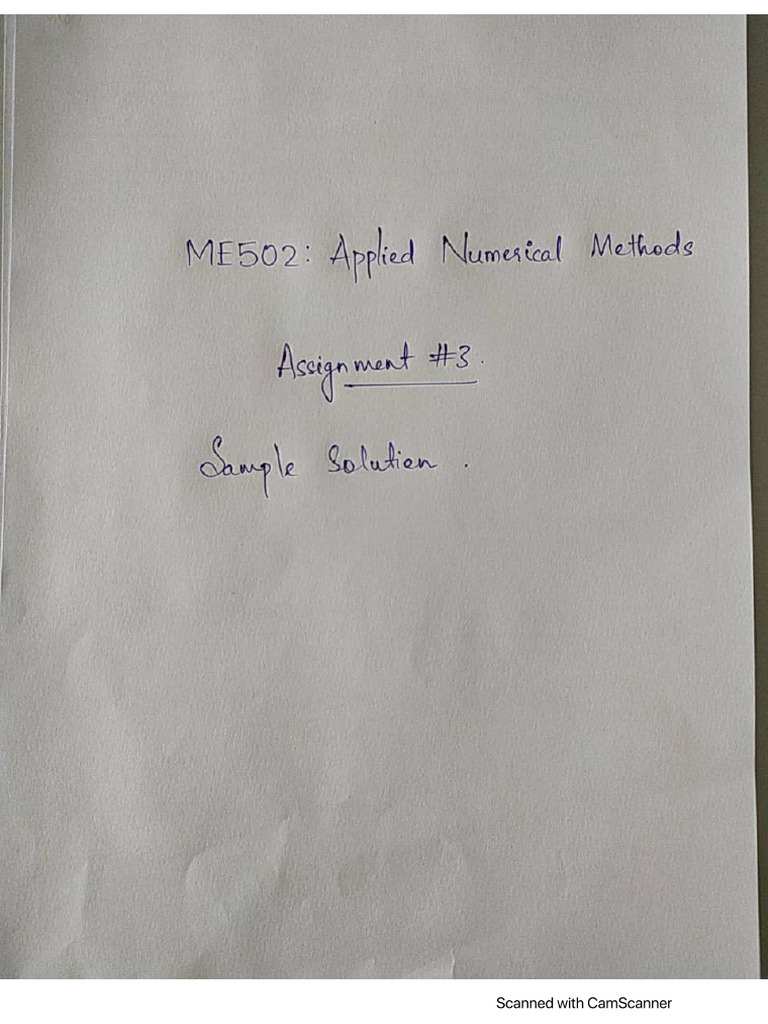 ME502: Applied Numerical Methods
Assignment #3.
Sample Solution.
Scanned with CamScanner